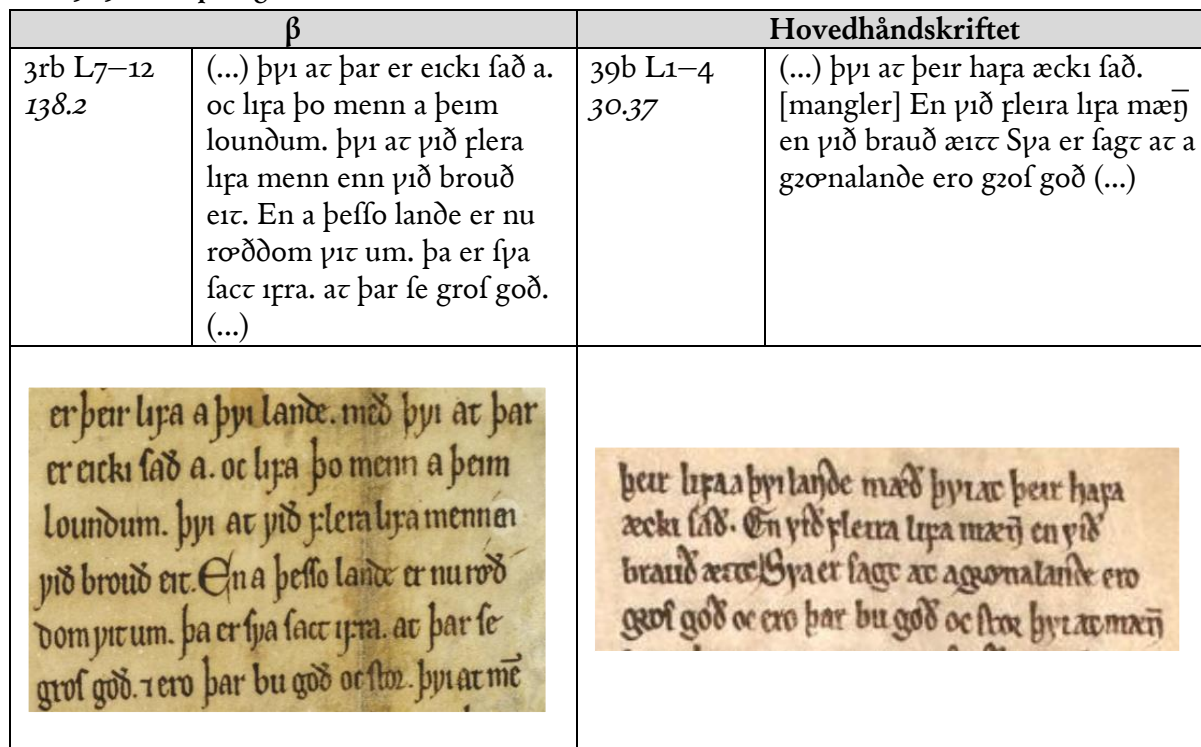 β
Hovedhåndskriftet
3rb L7–12
138.2
(...) þꝩı aꞇ þar er eıckı ſað a.
oc lıꝼa þo menn a þeım
lounꝺum. þꝩı aꞇ ꝩıð ꝼlera
lıꝼa menn enn ꝩıð brouð
eıꞇ. En a þeſſo lanꝺe er nu
rꝏððom ꝩıꞇ um. þa er ſꝩa
ſacꞇ ıꝼra. aꞇ þar ſe groſ goð.
(...)
39b L1–4
30.37
(...) þꝩı aꞇ þeır haꝼa æckı ſað.
[mangler] En ꝩıð ꝼleıra lıꝼa mæn̅
en ꝩıð brauð æıꞇꞇ Sꝩa er ſagꞇ aꞇ a
gꝛꝏnalanꝺe ero gꝛoſ goð (...)
er þeır lıꝼa a þꝩı lanꝺe. með þꝩı aꞇ þar
er eıckı ſað a. oc lıꝼa þo menn a þeım
lounꝺum. þꝩı aꞇ ꝩıð ꝼlera lıꝼa menn en
ꝩıð brouð eıꞇ. En a þeſſo lanꝺe er nu rꝏð
ðom ꝩıꞇ um. þa er ſꝩa ſacꞇ ıꝼra. aꞇ þar ſe
groſ goð. ⁊ ero þar bu goð oc ſꞇoꝛ. þꝩı aꞇ me̅
þeır lıꝼa a þꝩı lanꝺe mæð þꝩı aꞇ þeır haꝼa
æckı ſað. En ꝩıð ꝼleıra lıꝼa mæn̅ en ꝩıð
brauð æıꞇꞇ Sꝩa er ſagꞇ aꞇ a gꝛꝏnalanꝺe ero
gꝛoſ goð oc ero þar bu goð oc ſꞇoꝛ þꝩı aꞇ mæn̅